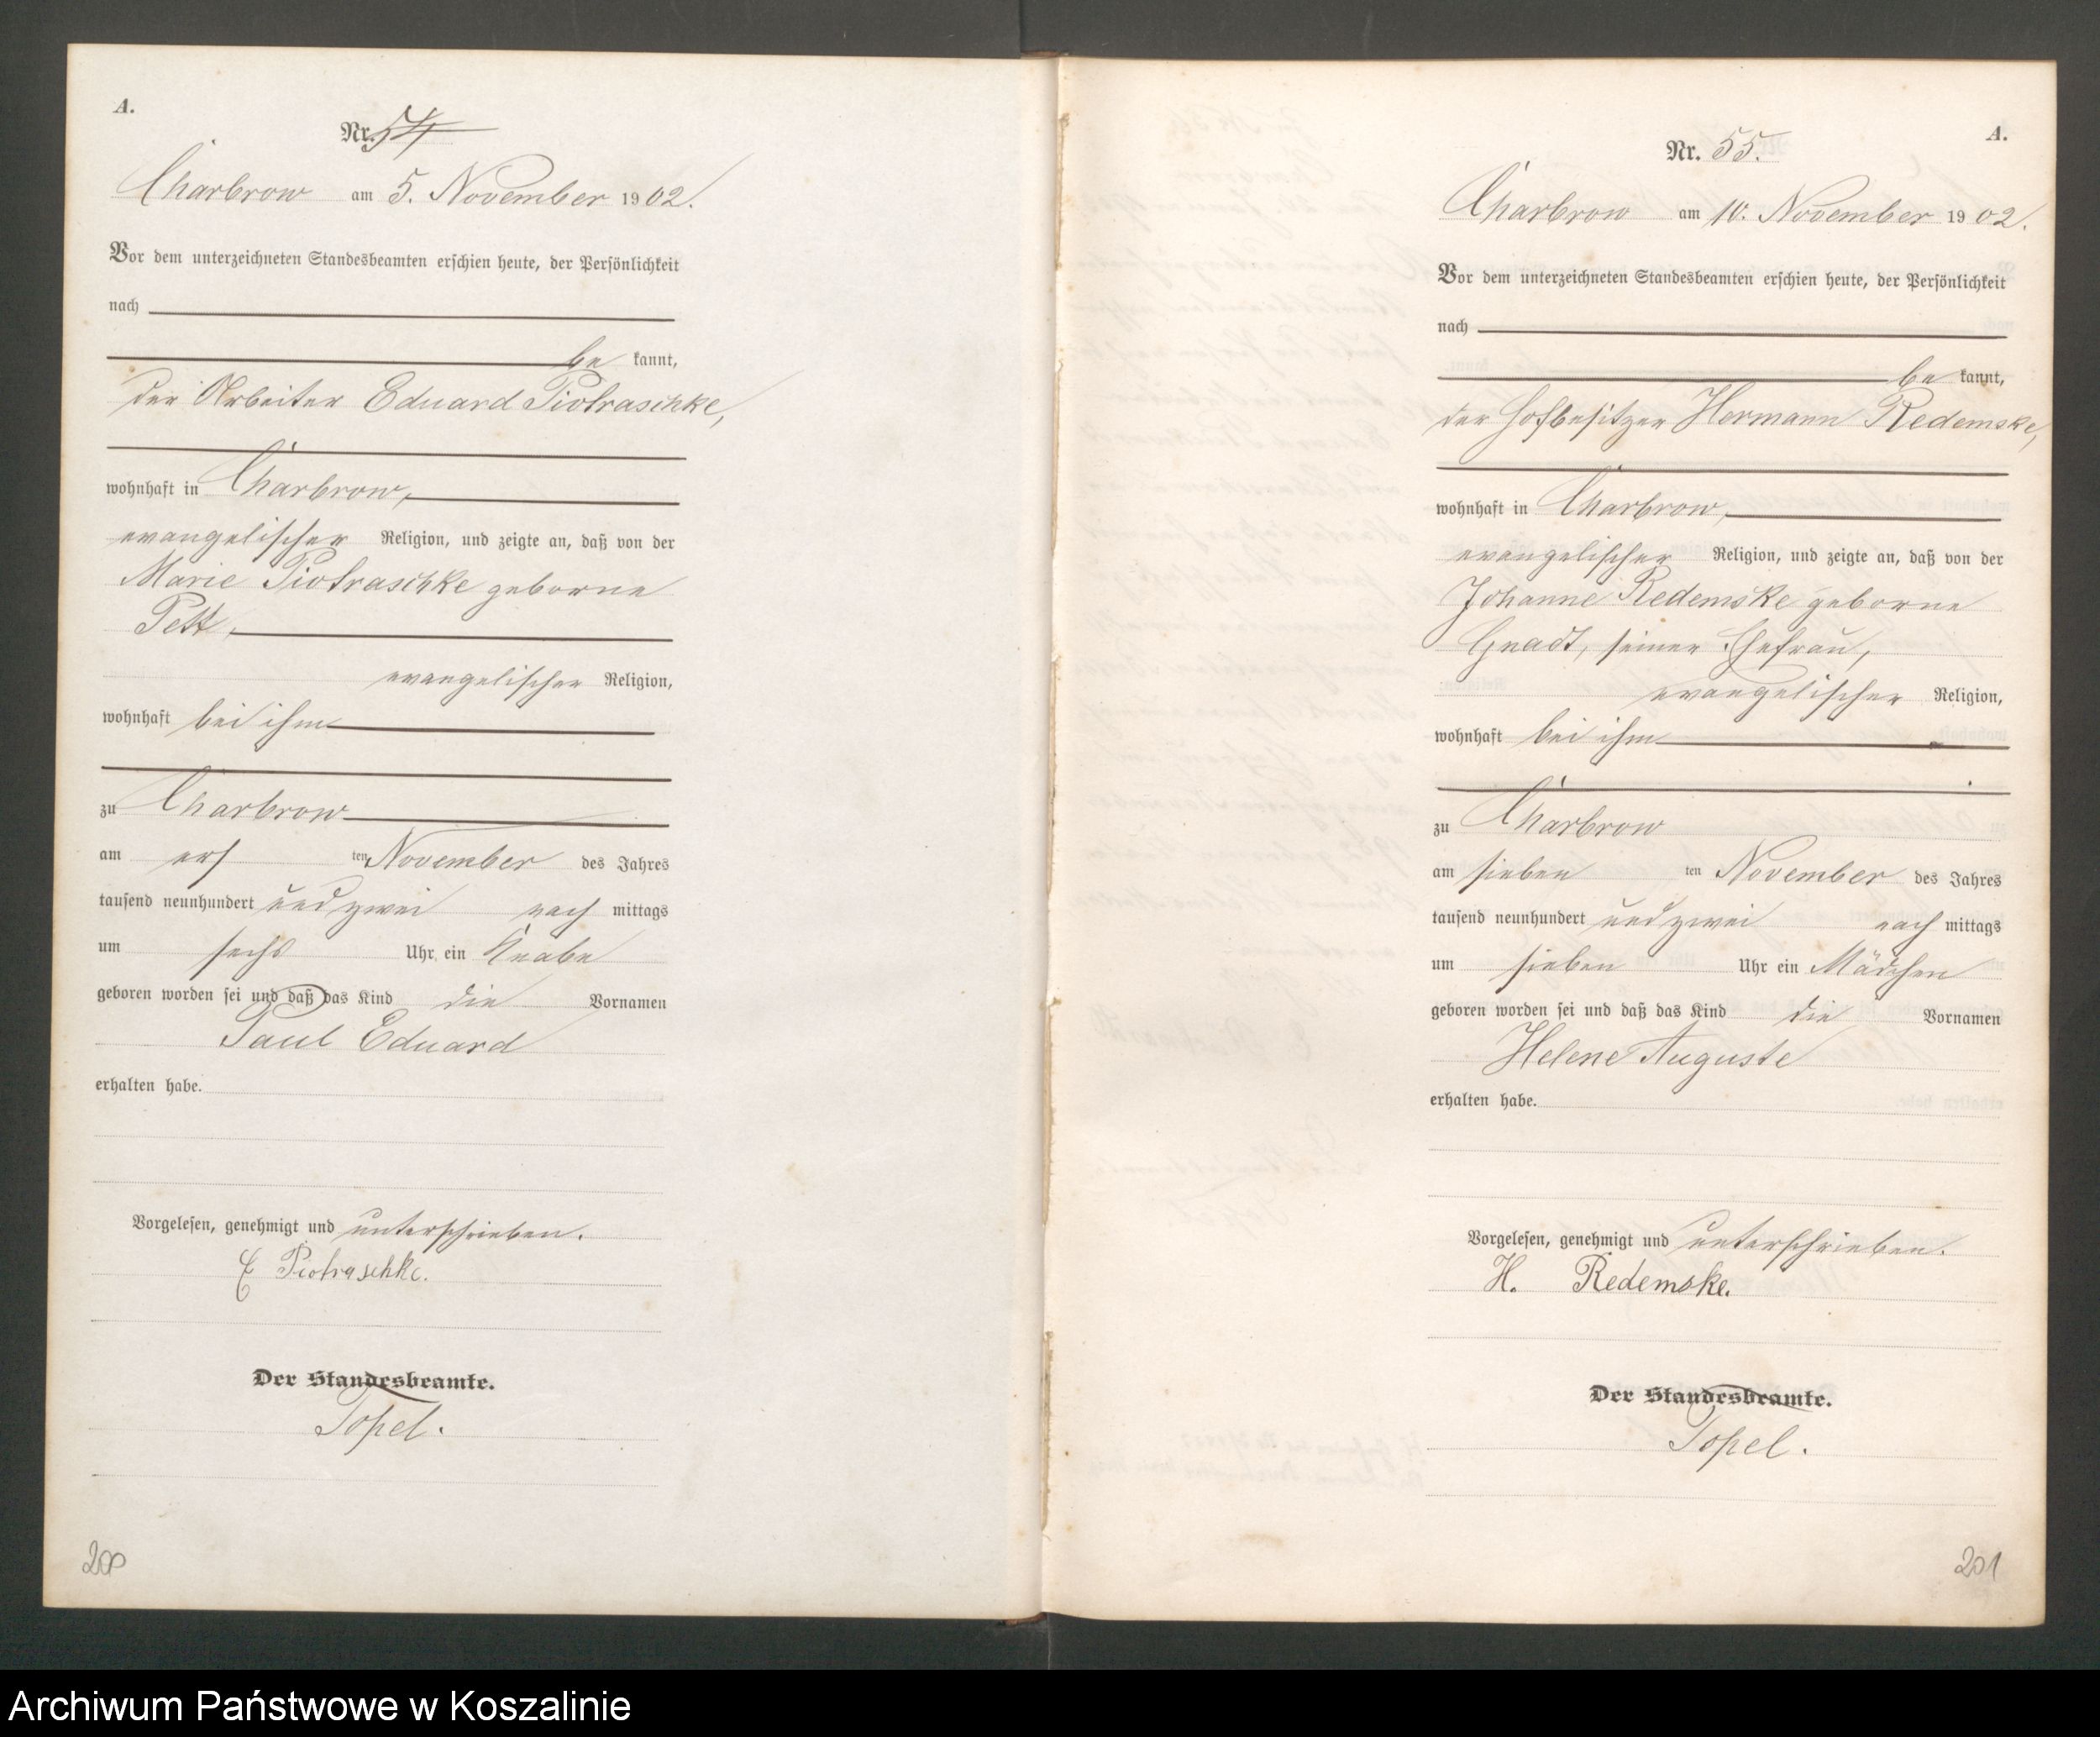 A.
Nr. 54
Charbrow am 5. November 1902.
Vor dem unterzeichneten Standesbeamten erschien heute, der Persönlichkeit
nach
be kannt,
der Arbeiter Eduard Piotraschke,
wohnhaft in Charbrow,
evangelischer Religion, und zeigte an, daß von der
Marie Piotraschke geborne
Pett,
evangelischer Religion,
wohnhaft bei ihm
zu Charbrow
am ers ten November des Jahres
tausend neunhundert und zwei nach mittags
um sechs Uhr ein Knabe
geboren worden sei und daß das Kind die Vornamen
Paul Eduard
erhalten habe.
Vorgelesen, genehmigt und unterschrieben.
E Piotraschke.
Der Standesbeamte.
Topel.
200
A.
Nr. 55.
Charbrow am 10. November 1902.
Vor dem unterzeichneten Standesbeamten erschien heute, der Persönlichkeit
nach
be kannt,
der Hofbesitzer Hermann Redemske,
wohnhaft in Charbrow,
evangelischer Religion, und zeigte an, daß von der
Johanne Redemske geborne
Gnadt, seiner Ehefrau,
evangelischer Religion,
wohnhaft bei ihm
zu Charbrow
am sieben ten November des Jahres
tausend neunhundert und zwei nach mittags
um sieben Uhr ein Mädchen
geboren worden sei und daß das Kind die Vornamen
Helene Auguste
erhalten habe.
Vorgelesen, genehmigt und unterschrieben.
H. Redemske.
Der Standesbeamte.
Topel.
201
Archiwum Państwowe w Koszalinie